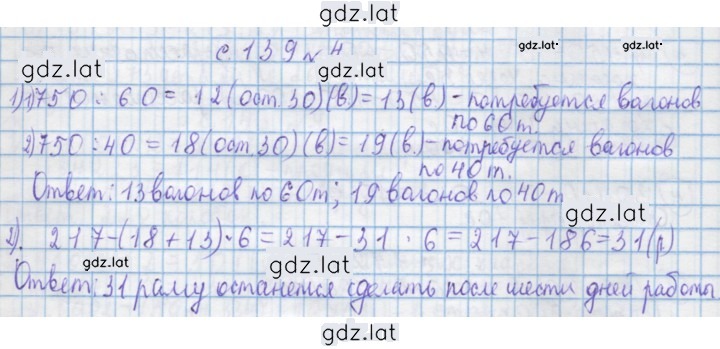 gdz.lat
с. 139 № 4
gdz.lat
gdz.lat
gdz.lat
1)1)750 : 60 = 12(ост.30)(в)=13(в)-потребуется вагонов
по 60 т.
2)750:40 = 18(ост.30)(в)=19(в)-потребуется вагонов
по 40 т.
Ответ: 13 вагонов по 60т; 19 вагонов по 40т
gdz.lat
2). 217-(18+13)·6=217-31·6=217-186=31(р)
gdz.lat
gdz.lat
Ответ: 31 раму останется сделать после шести дней работы
gdz.lat